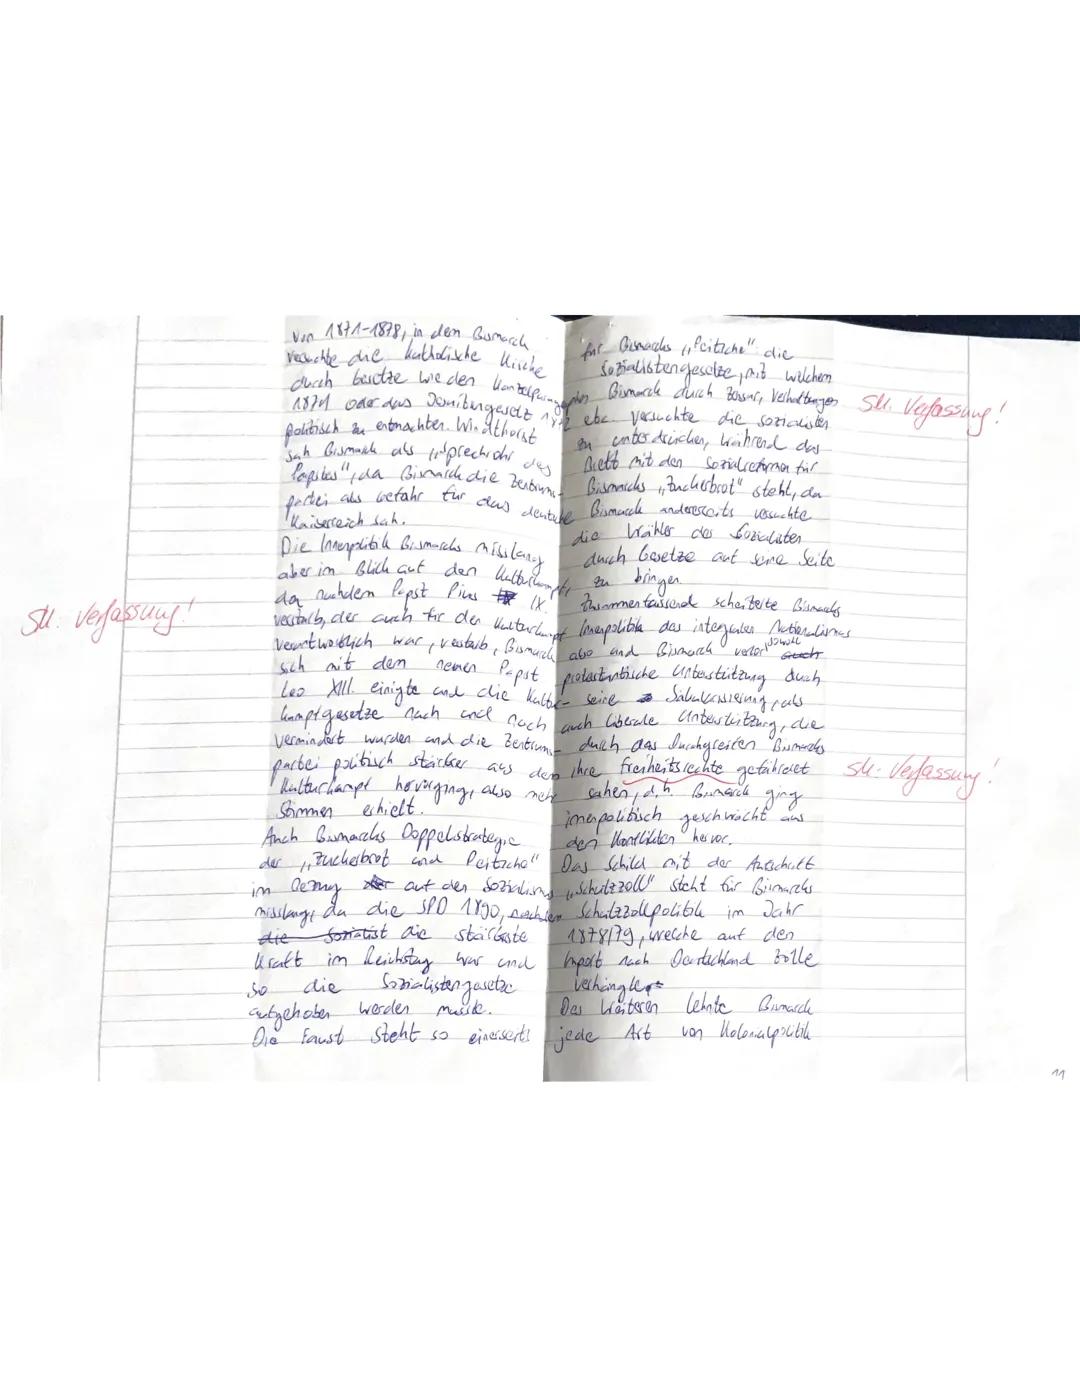 von 1871-1878, in dem Bismarck
versuchte die katholische Kirche
durch Gesetze wie den Kanzelparagraphen
1871 oder das Jesuitengesetz 1872
politisch zu entmachten. Windthorst
sah Bismarck als "Sprechrohr des
Papstes", da Bismarck die Zentrums-
partei als Gefahr für das deutsche
Kaiserreich sah.
Die Innenpolitik Bismarcks misslang
aber im Blick auf den Kulturkampf,
da nachdem Papst Pius IX.
verstarb, der auch für den Kulturkampf
verantwortlich war, verstarb, Bismarck
sich mit dem neuen Papst
Leo XIII. einigte und die Kultur-
kampfgesetze nach und nach
vermindert wurden und die Zentrums-
partei politisch stärker aus dem
Kulturkampf hervorging, also mehr
Stimmen erhielt.
Auch Bismarcks Doppelstrategie
der "Zuckerbrot und Peitsche"
im Bezug auf den Sozialismus
misslang, da die SPD 1890, nachdem
die Sozialist die stärkste
Kraft im Reichstag war und
so die Sozialistengesetze
aufgehoben werden musste.
Die Faust steht so einerseits
für Bismarcks "Peitsche": die
Sozialistengesetze, mit welchem
Bismarck durch Zensur, Verhaftungen
etc. versuchte die Sozialisten
zu unterdrücken, während das
Brett mit den Sozialreformen für
Bismarcks "Zuckerbrot" steht, da
Bismarck andererseits versuchte
die Wähler des Sozialisten
durch Gesetze auf seine Seite
zu bringen.
Zusammenfassend scheiterte Bismarcks
Innenpolitik des integralen Nationalismus
also und Bismarck verlor sowohl auch
protestantische Unterstützung durch
seine Säkularisierung, als
auch liberale Unterstützung, die
durch das Durchgreifen Bismarcks
ihre Freiheitsrechte gefährdet
sahen, d.h. Bismarck ging
innenpolitisch geschwächt aus
den Konflikten hervor.
Das Schild mit der Aufschrift
"Schutzzoll" steht für Bismarcks
Schutzzollpolitik im Jahr
1878/79, welche auf den
Import nach Deutschland Zölle
verhängte.
Des Weiteren lehnte Bismarck
jede Art von Kolonialpolitik
Stk. Verfassung!
Stk. Verfassung!
Stk. Verfassung!
11